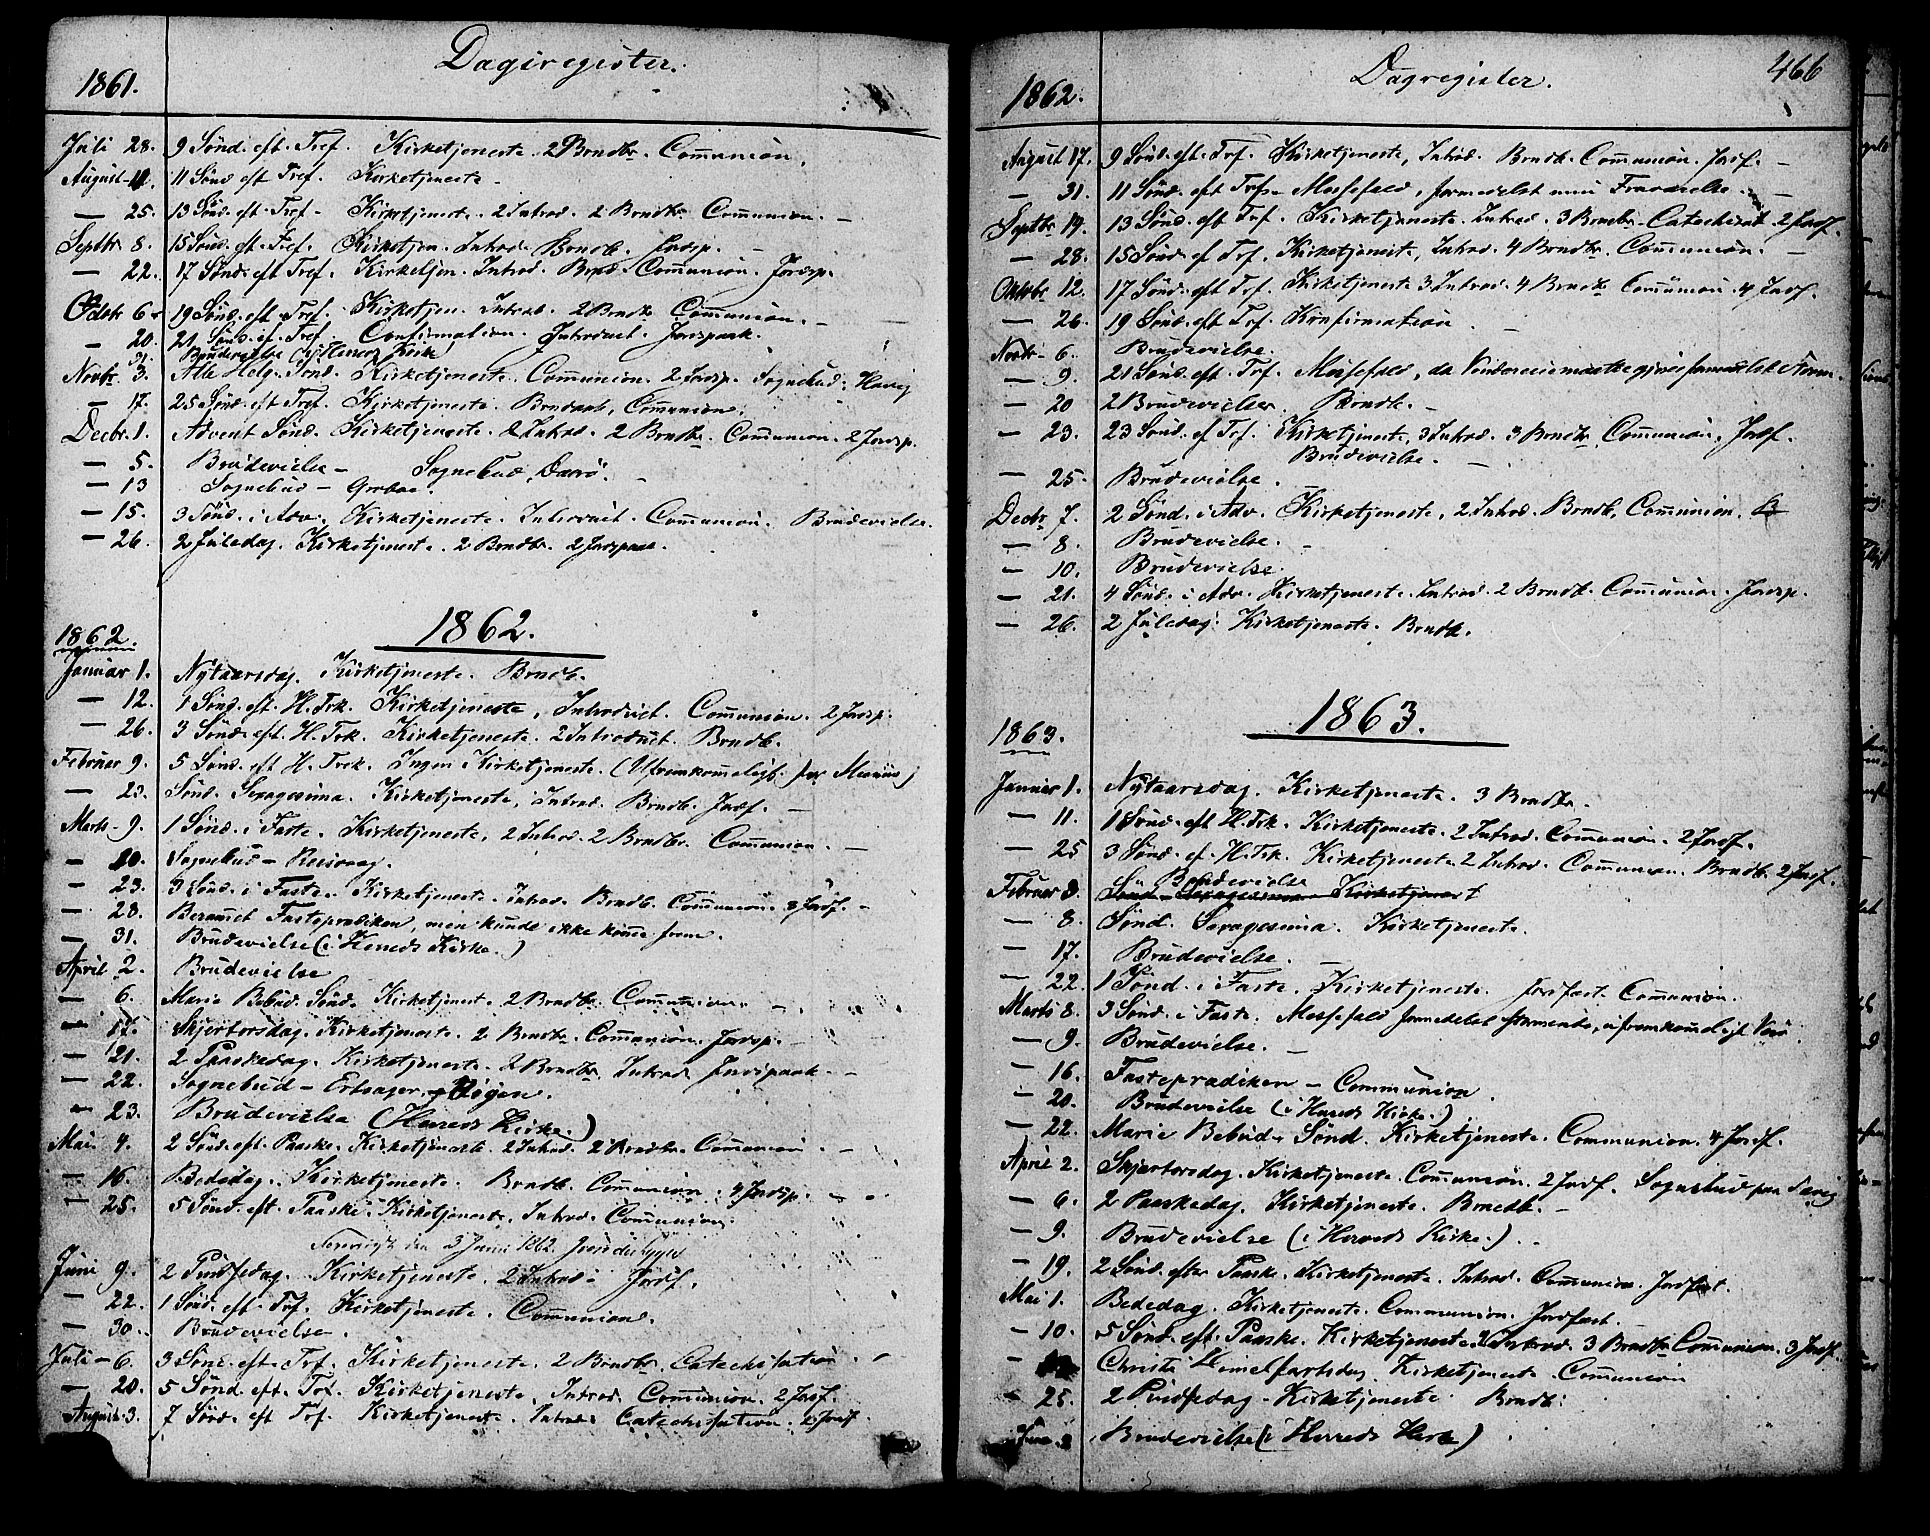 Dagsregister.
1861.
Juli 28. 9 Sønd. eft. Tref. Kirketjeneste. 2 Brndb. Communion.
August 11. 11 Sønd eft Tref. Kirketjeneste.
— 25. 13 Sønd. eft. Tref. Kirketjeneste. 2 Introd. 2 Brndb. Communion. —
Septbr. 8. 15 Sønd. eft. Tref. Kirketjen. Introd. Brndb. Jordsp. —
— 22. 17 Sønd. eft Tref. Kirketjen. Introd. Brnd. Communion. Jordsp.
Octobr 6. 19 Sønd. eft. Tref. Kirketjen. Introd. 2 Brndb. Communion. —
— 20. 21. Sønd. ef. Tref. Confirmation. Introduct. Jordspaak.
31. Brudevielse (i Herreds Kirke)
Novbr 3. Alle Helg. Sønd. Kirketjeneste. Communion. 2 Jordsp. Sognebud:
— 17. 25 Sønd. eft. Tref. Kirketjeneste. Brndaab, Communion.
Decbr. 1. Advent Sønd. Kirketjeneste. 2 Introd. 2 Brndb. Communion. 2 Jordsp.
— 5. Brudevielse — Sognebud,
— 13 Sognebud —
— 15. 3 Sønd. i Adv. Kirketjeneste. Introduct. Communion. Brudevielse.
— 26. 2 Juledag. Kirketjeneste. 2 Brndb. 2 Jordspaak.
1862.
1862.
Januar 1. Nytaarsdag. Kirketjeneste. Brndb.
— 12. 1 Sønd. eft. H. Trk. Kirketjeneste, Introduct. Communion. 2 Jordsp.
— 26. 3 Sønd. eft. H. Trk. Kirketjeneste. 2 Introduct. Brndb.
Februar 9. 5 Sønd. eft H. Trek. Ingen Kirketjeneste. (Ufremkommeligt for
— 23. Sønd. Sexagesima. Kirketjeneste, Introd. Brndb. Jordf. —
Marts 9. 1 Sønd. i Faste. Kirketjeneste, 2 Introd. 2 Brndbr. Communion. —
— 20. Sognebud —
— 23. 3 Sønd. i Faste. Kirketjeneste. Introd. Brndb. Communion. Jordf. —
— 28. Berammet Fasteprædiken, men kunde ikke komme frem.
— 31. Brudevielse (i Herreds Kirke.)
April 2. Brudevielse
— 6. Maria Bebud. Sønd. Kirketjenest. 2 Brndbr. Communion.
— 17. Skjertorsdag. Kirketjeneste. 2 Brndbr. Communion. Jordsp. —
— 21. 2 Paaskedag. Kirketjeneste. 2 Brndbr. Introd. Jordspaak. —
— 22. Sognebud —
— 23. Brudevielse (Herreds Kirke.)
Mai 4. 2 Sønd. eft. Paaske. Kirketjeneste. 2 Introd. 2 Brndbr. Communion —
— 16. Bededag. Kirketjeneste. Brndb. Communion. 4 Jordsp. —
— 25. 5 Sønd. eft. Paaske. Kirketjeneste. Introd. Communion.
den 3 Juni 1862.
Juni 9. 2 Pindsedag. Kirketjeneste. 2 Introd. Jordf.
— 22. 1 Sønd. eft. Tref. Kirketjeneste. Communion.
— 30. Brudevielse.
Juli 6. 3 Sønd. eft. Tref. Kirketjeneste. 2 Brndbr. Catechisation.
— 20. 5 Sønd. eft. Tref. Kirketjeneste, Introd. Communion. 2 Jordf.
August 3. 7 Sønd. eft Tref. Kirketjeneste. Introd. Catechisation. 2 Jordf.
Dagregister.
466
1862.
August 17. 9 Sønd. eft. Tref. Kirketjeneste, Introd. Brndb. Communion. Jordf. —
— 31. 11 Sønd. eft Tref. Messefald, formedelst min Fraværelse.
Septbr 19. 13 Sønd. eft Tref. Kirketjeneste. Introd. 3 Brndbr. Catechisat. 2 Jordf.
— 28. 15 Sønd. ef Tref. Kirketjeneste, Introd. 4 Brndbr. Communion. —
Oktobr 12. 17 Sønd. eft Tref. Kirketjeneste 3 Introd. 4 Brndbr. Communion. 4 Jordf.
— 26. 19 Sønd. eft Tref. Konfirmation.
Novbr. 6. Brudevielse.
— 9. 21 Sønd. eft. Tref. Messefald, da
— 20 2 Brudevielser. Brndb. —
— 23. 23 Sønd. ef Tref. Kirketjeneste, 3 Introd. 3 Brndbr. Communion. Jordf.
Brudevielse. —
— 25. Brudevielse.
Decbr 7. 2 Sønd. i Adv. Kirketjeneste, 2 Introd. Brndb. Communion. B
— 8. Brudevielse. —
— 10. Brudevielse.
— 21. 4 Sønd. i Adv. Kirketjeneste. Introd. 2 Brndb. Communion. Jordsp.
— 26. 2 Juledag. Kirketjeneste. Brndb.
1863.
1863.
Januar 1. Nytaarsdag. Kirketjeneste. 3 Brndbr.
— 11. 1 Sønd. eft H. Trk. Kirketjeneste. 2 Introd. Communion. 2 Jordf.
— 25 3 Sønd. ef. H. Trk. Kirketjeneste. 2 Introd. Communion. Brndb. 2 Jordf.
Brudevielse
Februar 3. Sønd. Sexagesima Kirketjenest
— 8. Sønd. Sexagesima. Kirketjeneste.
— 17. Brudevielse. —
— 22. 1 Sønd. i Faste. Kirketjeneste. Jordfæst. Communion.
Marts 8. 3 Sønd. i Faste. Messefald formedelst Stormende, ufremkommeligt
— 9. Brudevielse. —
— 16. Fasteprædiken — Communion
— 20. Brudevielse (i Herreds Kirke.)
— 22. Marie Bebud. Sønd. Kirketjeneste. Communion. 4 Jordf.
April 2. Skjertorsdag. Kirketjeneste. Communion. 2 Jordf. Sognebud paa
— 6. 2 Paaskedag. Kirketjeneste. Brndb. —
— 9. Brudevielse (i Herreds Kirke.)
— 19. 2 Sønd. efter Paaske. Kirketjeneste. Introd. Communion. Jordfæst.
Mai 1. Bededag. Kirketjeneste. Communion. Jordfæst.
— 10. 5 Sønd. eft. Paaske. Kirketjeneste. 2 Introd. 3 Brndbr. Communion. 3 Jordf.
— Christi Himmelfartsdag. Kirketjeneste. Communion
— 25. 2 Pindsedag. Kirketjeneste Brndb.
Juni 2 Brudevielse (i Herreds Kirke)